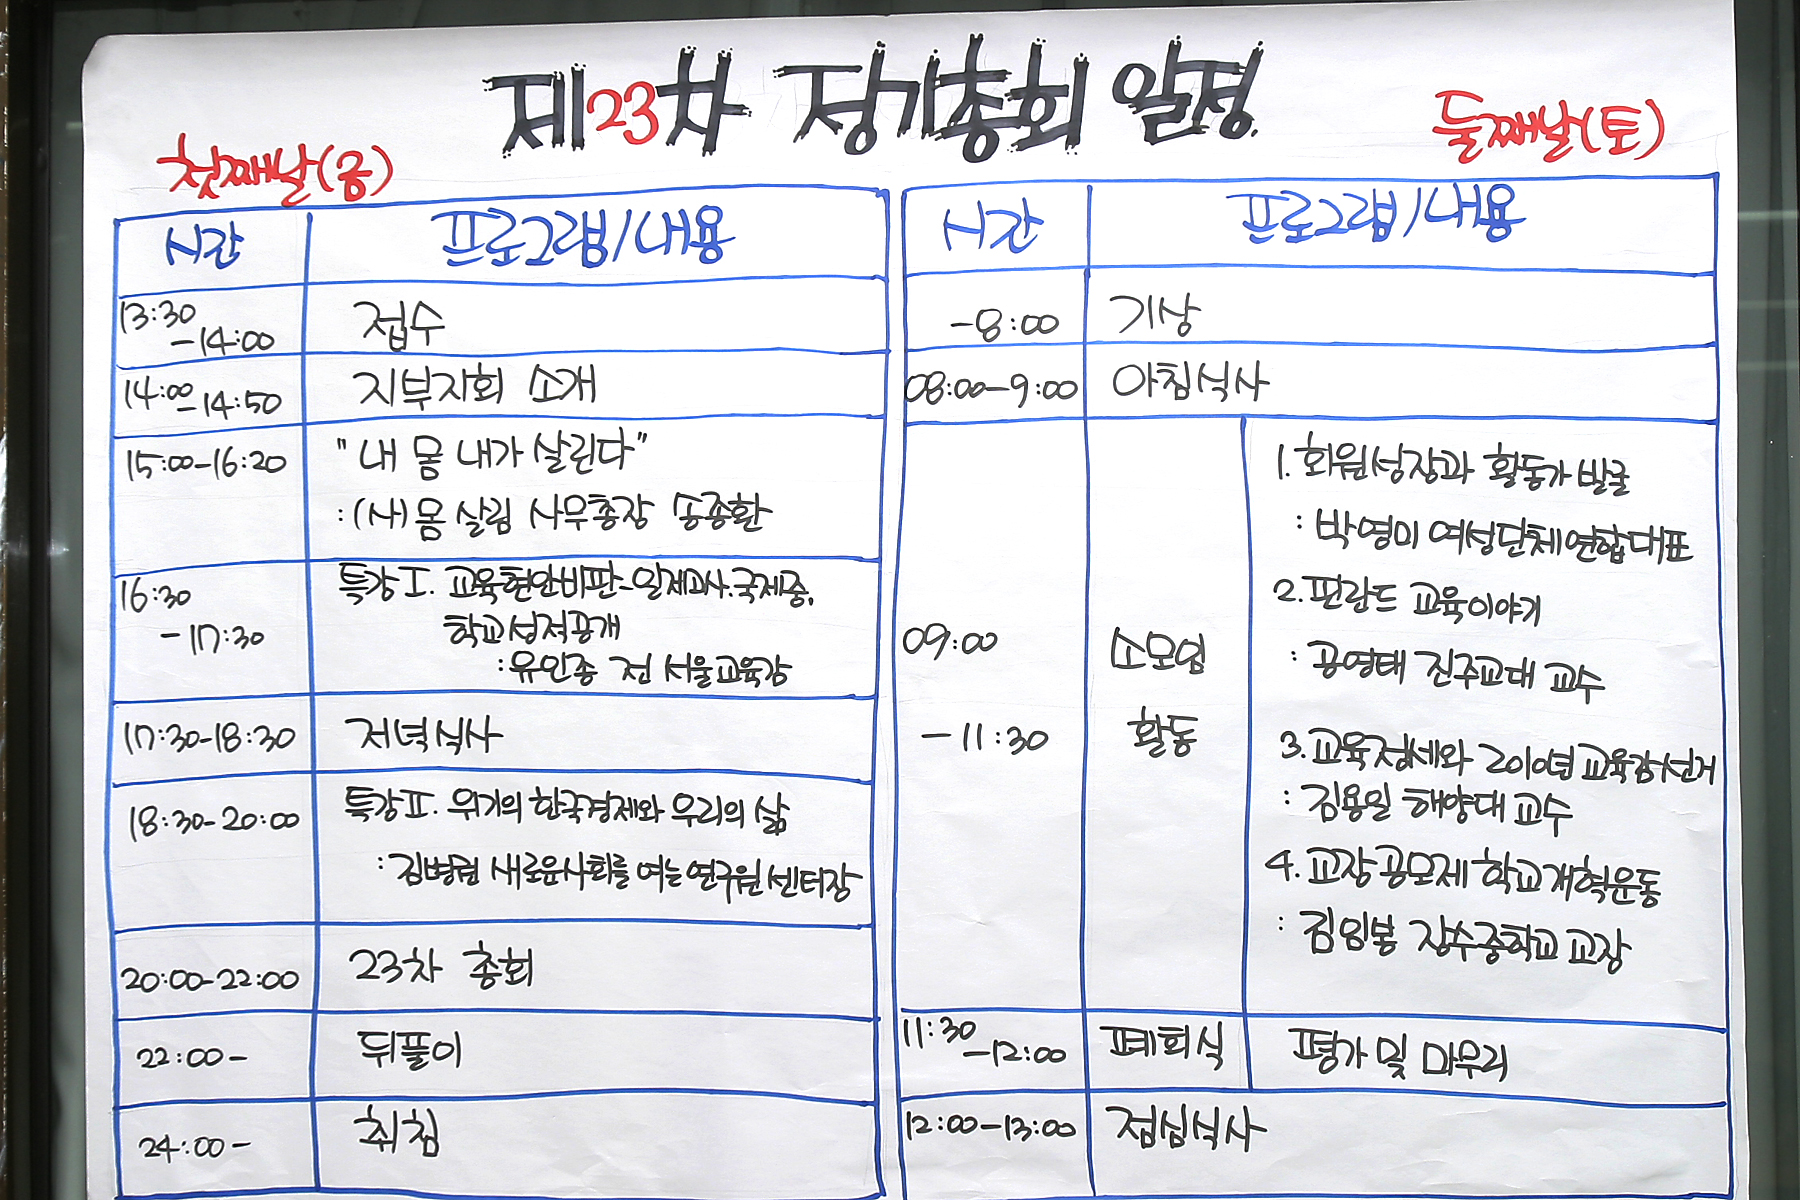 제23차 정기총회 일정
첫째날(금)
시간 프로그램/내용
13:30
-14:00 접수
14:00-14:50 지부지회 소개
15:00-16:20 "내 몸 내가 살린다"
:(사)몸 살림 사무총장 송종환
16:30
-17:30
특강Ⅰ. 교육현안비판-일제고사.국제중,
학교성적공개
:유인종 전 서울교육감
17:30-18:30 저녁식사
18:30-20:00 특강Ⅱ. 위기의 한국경제와 우리의 삶
:김병권 새로운사회를 여는 연구원 센터장
20:00-22:00 23차 총회
22:00- 뒤풀이
24:00- 취침
둘째날(토)
시간 프로그램/내용
-8:00 기상
08:00-9:00 아침식사
09:00
-11:30
소모임
활동
1. 회원성장과 활동가 발굴
: 박영미 여성단체연합대표
2. 핀란드 교육이야기
: 공영태 진주교대 교수
3. 교육정세와 2010년 교육감선거
: 김용일 해양대 교수
4. 교장공모제 학교개혁운동
: 김임봉 장수중학교 교장
11:30
-12:00 폐회식 평가 및 마무리
12:00-13:00 점심식사